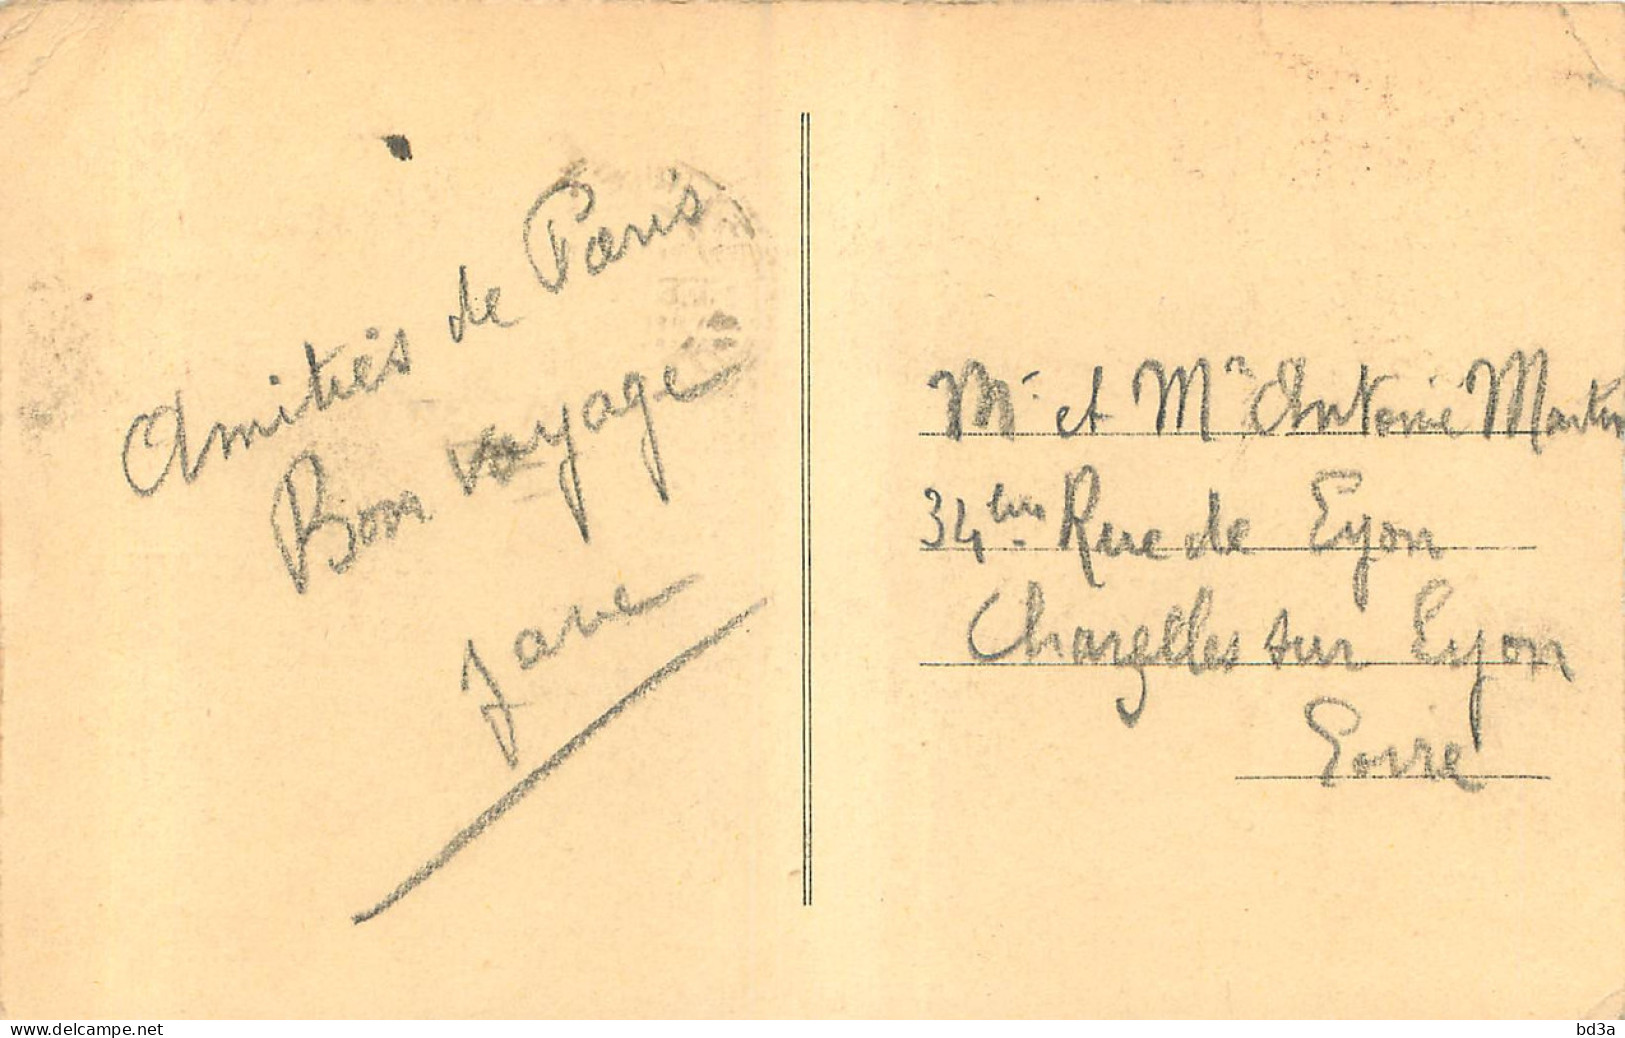 Amitiés de Paris
Bon voyage
Mr et Mme Antoine Martin
34 Rue de Lyon
Chazelles sur Lyon
Loire
www.delcampe.net
bd3a